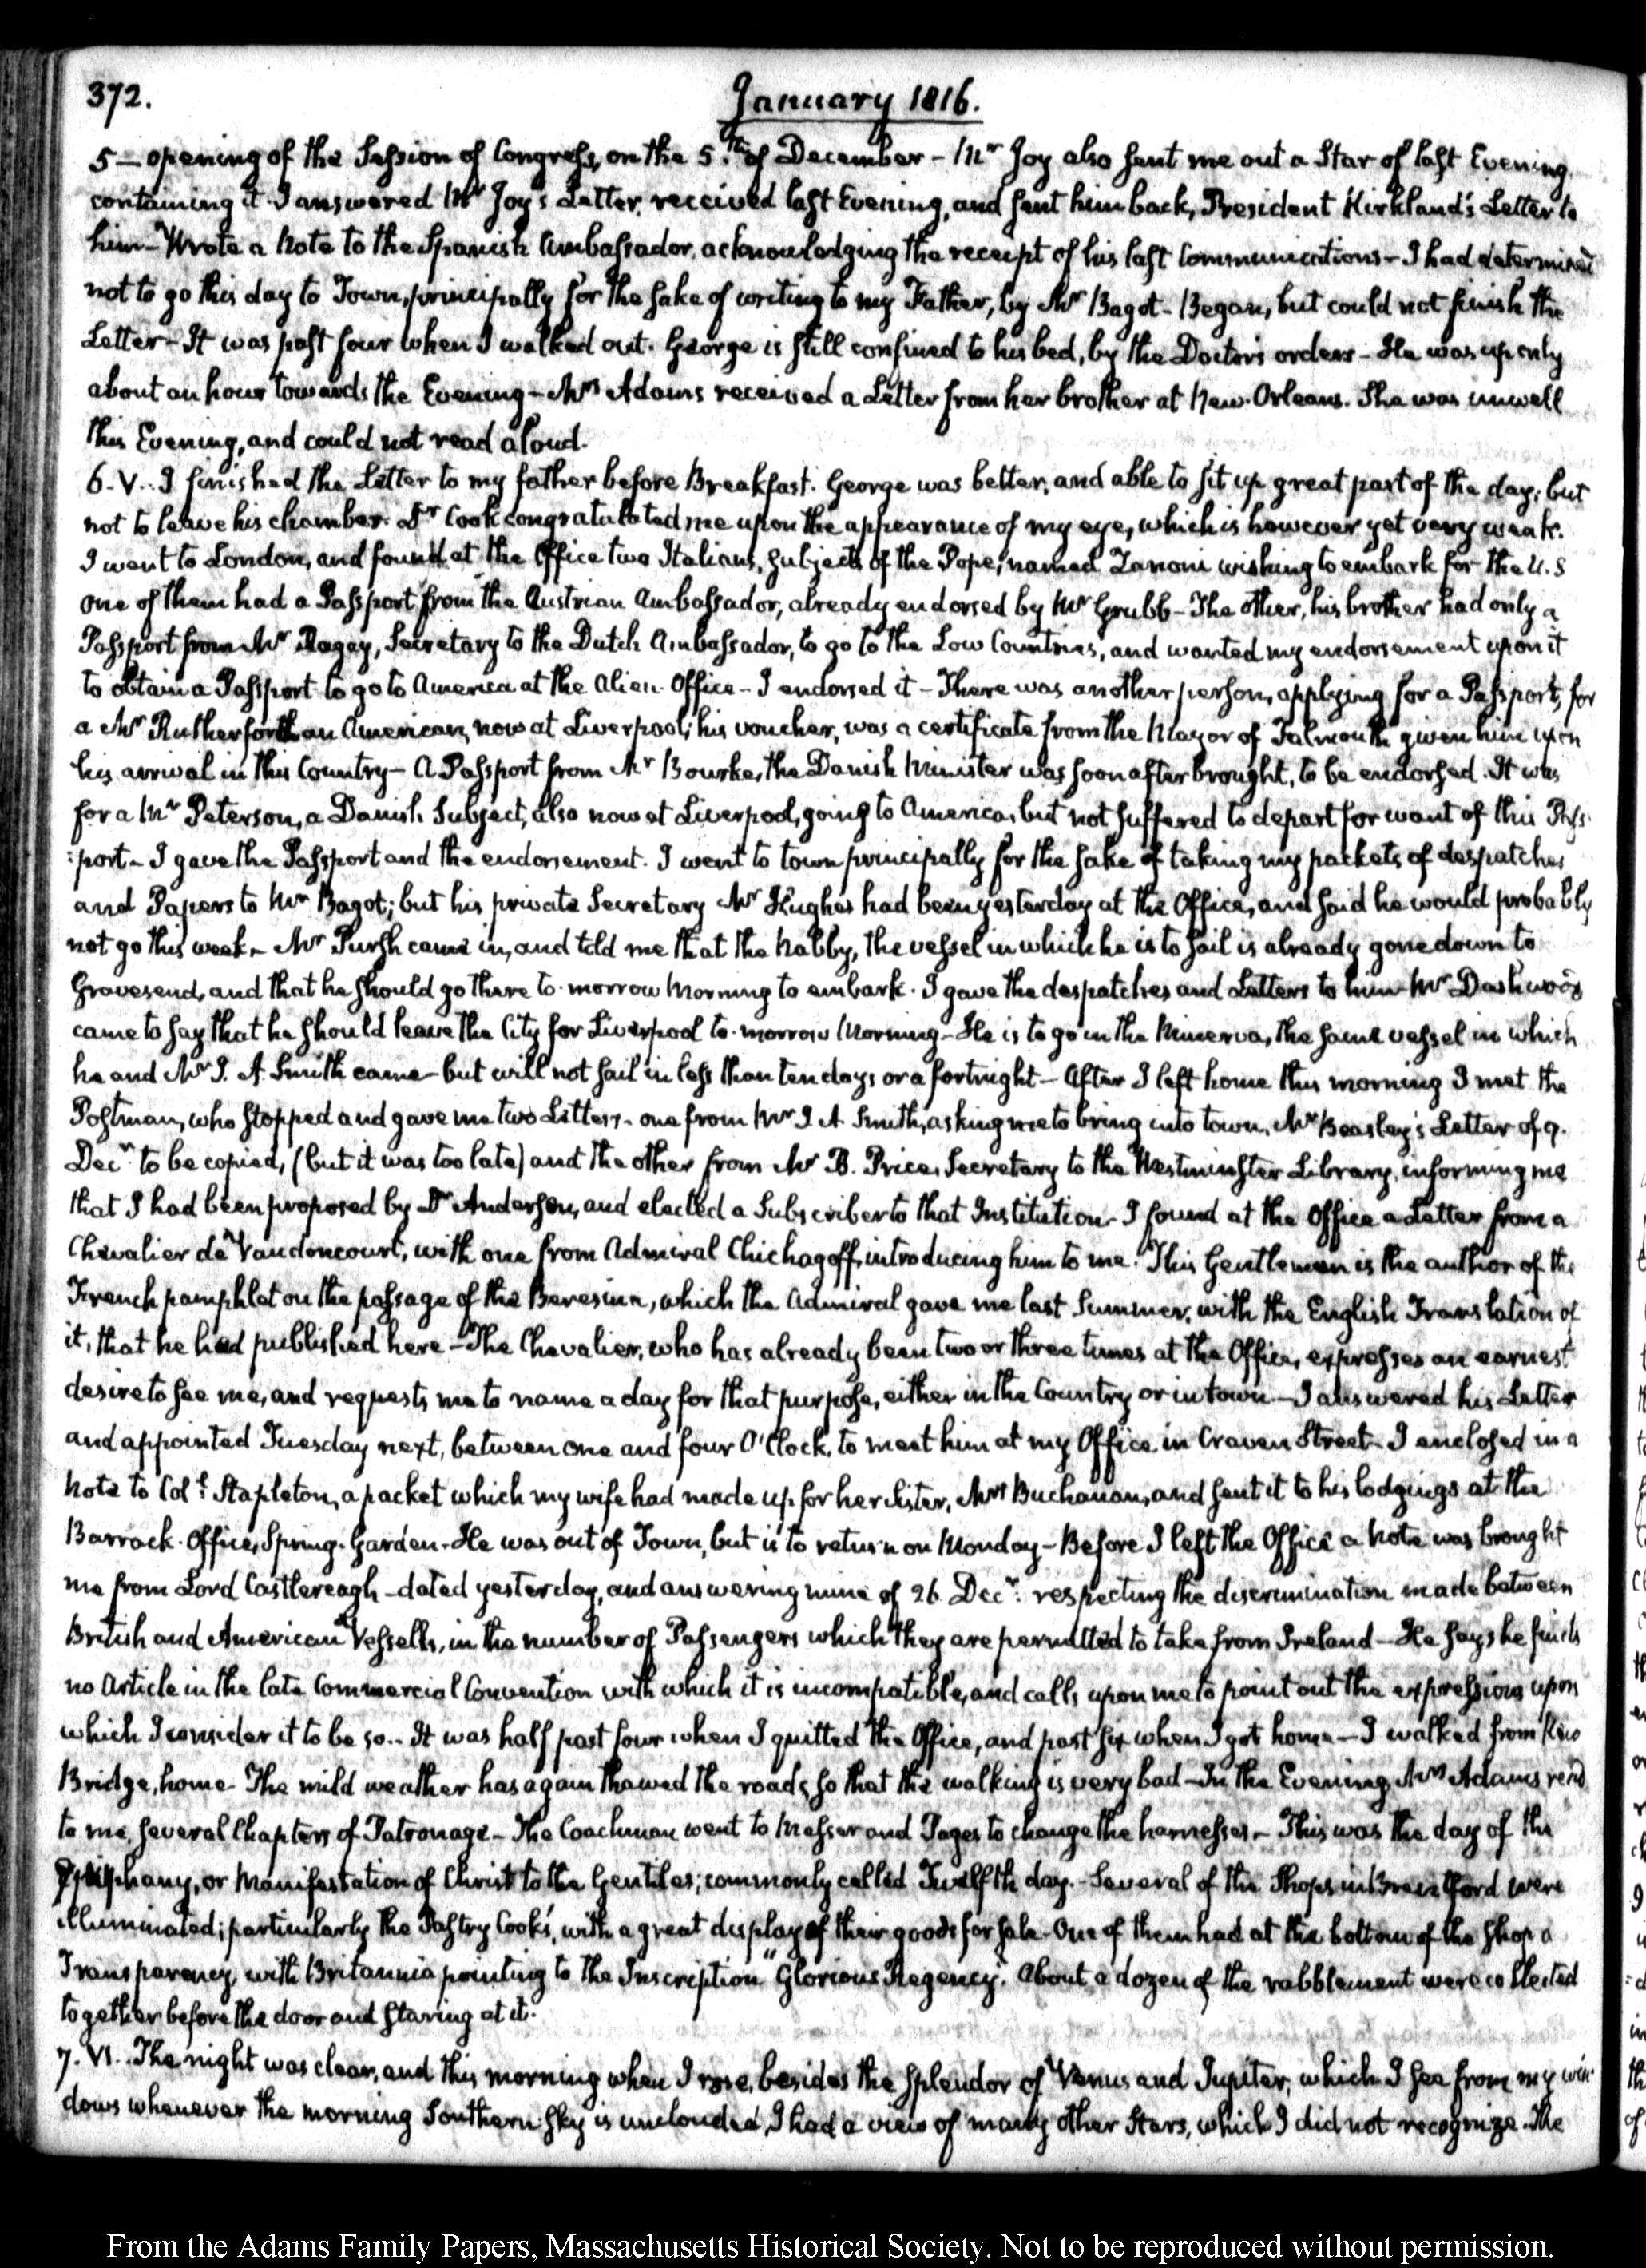 372.
January 1816.
5 — opening of the Session of Congress, on the 5.th of December - Mr Joy also sent me out a Star of last Evening
containing it. I answered Mr Joy's Letter, received last Evening, and sent him back, President Kirkland's Letter to
him - Wrote a Note to the Spanish Ambassador, acknowledging the receipt of his last Communications - I had determined
not to go this day to Town, principally for the sake of writing to my Father, by Mr Bagot - Began, but could not finish the
Letter - It was past four when I walked out. George is still confined to his bed, by the Doctor's orders - He was up only
about an hour towards the Evening - Mrs Adams received a Letter from her brother at New-Orleans. She was unwell
this Evening, and could not read aloud.
6. V.. I finished the Letter to my father before Breakfast. George was better, and able to sit up great part of the day; but
not to leave his chamber. Dr Cook congratulated me upon the appearance of my eye, which is however yet very weak.
I went to London, and found at the Office two Italians, subjects of the Pope, named Zanoni wishing to embark for the U.S
one of them had a Passport from the Austrian Ambassador, already endorsed by Mr Grubb - The other, his brother had only a
Passport from Mr Secretary to the Dutch Ambassador, to go to the Low Countries, and wanted my endorsement upon it
to obtain a Passport to go to America at the Alien Office - I endorsed it - There was another person, applying for a Passport, for
a Mr Rutherforth an American, now at Liverpool; his voucher, was a certificate from the Mayor of Falmouth given him upon
his arrival in this Country - A Passport from Mr Bourke, the Danish Minister was soon after brought, to be endorsed. It was
for a Mr Peterson, a Danish Subject, also now at Liverpool, going to America, but not suffered to depart for want of this Pass
:port - I gave the Passport and the endorsement. I went to town principally for the sake of taking my packets of despatches
and Papers to Mr Bagot; but his private Secretary Mr Hughes had been yesterday at the Office, and said he would probably
not go this week - Mr Pursh came in, and told me that the Nabby, the vessel in which he is to sail is already gone down to
Gravesend, and that he should go there to-morrow Morning to embark. I gave the despatches and Letters to him - Mr Dashwood
came to say that he should leave the City for Liverpool to-morrow Morning - He is to go in the Minerva, the same vessel in which
he and Mr J. A. Smith came - but will not sail in less than ten days or a fortnight - After I left home this morning I met the
Postman, who stopped and gave me two Letters - one from Mr J. A Smith, asking me to bring into town, Mr Beasley's Letter of 9.
Decr to be copied, (but it was too late) and the other from Mr B. Price, Secretary to the Westminster Library, informing me
that I had been proposed by Dr Anderson, and elected a Subscriber to that Institution - I found at the Office a Letter from a
Chevalier de Vaudoncourt, with one from Admiral Chichagoff, introducing him to me. This Gentleman is the author of the
French pamphlet on the passage of the Beresina, which the Admiral gave me last Summer, with the English Translation of
it, that he had published here - The Chevalier, who has already been two or three times at the Office, expresses an earnest
desire to see me, and requests me to name a day for that purpose, either in the Country or in town - I answered his Letter
and appointed Tuesday next, between one and four O'Clock, to meet him at my Office in Craven Street - I enclosed in a
Note to Coll Stapleton, a packet which my wife had made up for her Sister, Mrs Buchanan, and sent it to his lodgings at the
Barrack-Office, Spring-Garden - He was out of Town, but is to return on Monday - Before I left the Office a Note was brought
me from Lord Castlereagh - dated yesterday, and answering mine of 26. Decr: respecting the discrimination made between
British and American Vessells, in the number of Passengers which they are permitted to take from Ireland - He says he finds
no Article in the late Commercial Convention with which it is incompatible, and calls upon me to point out the expressions upon
which I consider it to be so.. It was half past four when I quitted the Office, and past six when I got home - I walked from Kew
Bridge, home - The mild weather has again thawed the roads, so that the walking is very bad - In the Evening, Mrs Adams read
to me, several Chapters of Patronage - The Coachman went to Messer and Pages to change the harnesses - This was the day of the
Epiphany, or Manifestation of Christ to the Gentiles; commonly called Twelfth day. - Several of the Shops in Brentford were
illuminated; particularly the Pastry Cooks', with a great display of their goods for sale - One of them had at the bottom of the Shop a
Transparency, with Britannia pointing to the Inscription "Glorious Regency." About a dozen of the rabblement were collected
together before the door and staring at it.
7. VI.. The night was clear, and this morning when I rose, besides the splendor of Venus and Jupiter, which I see from my win
dows whenever the morning Southern Sky is unclouded, I had a view of many other Stars, which I did not recognize. The
From the Adams Family Papers, Massachusetts Historical Society. Not to be reproduced without permission.